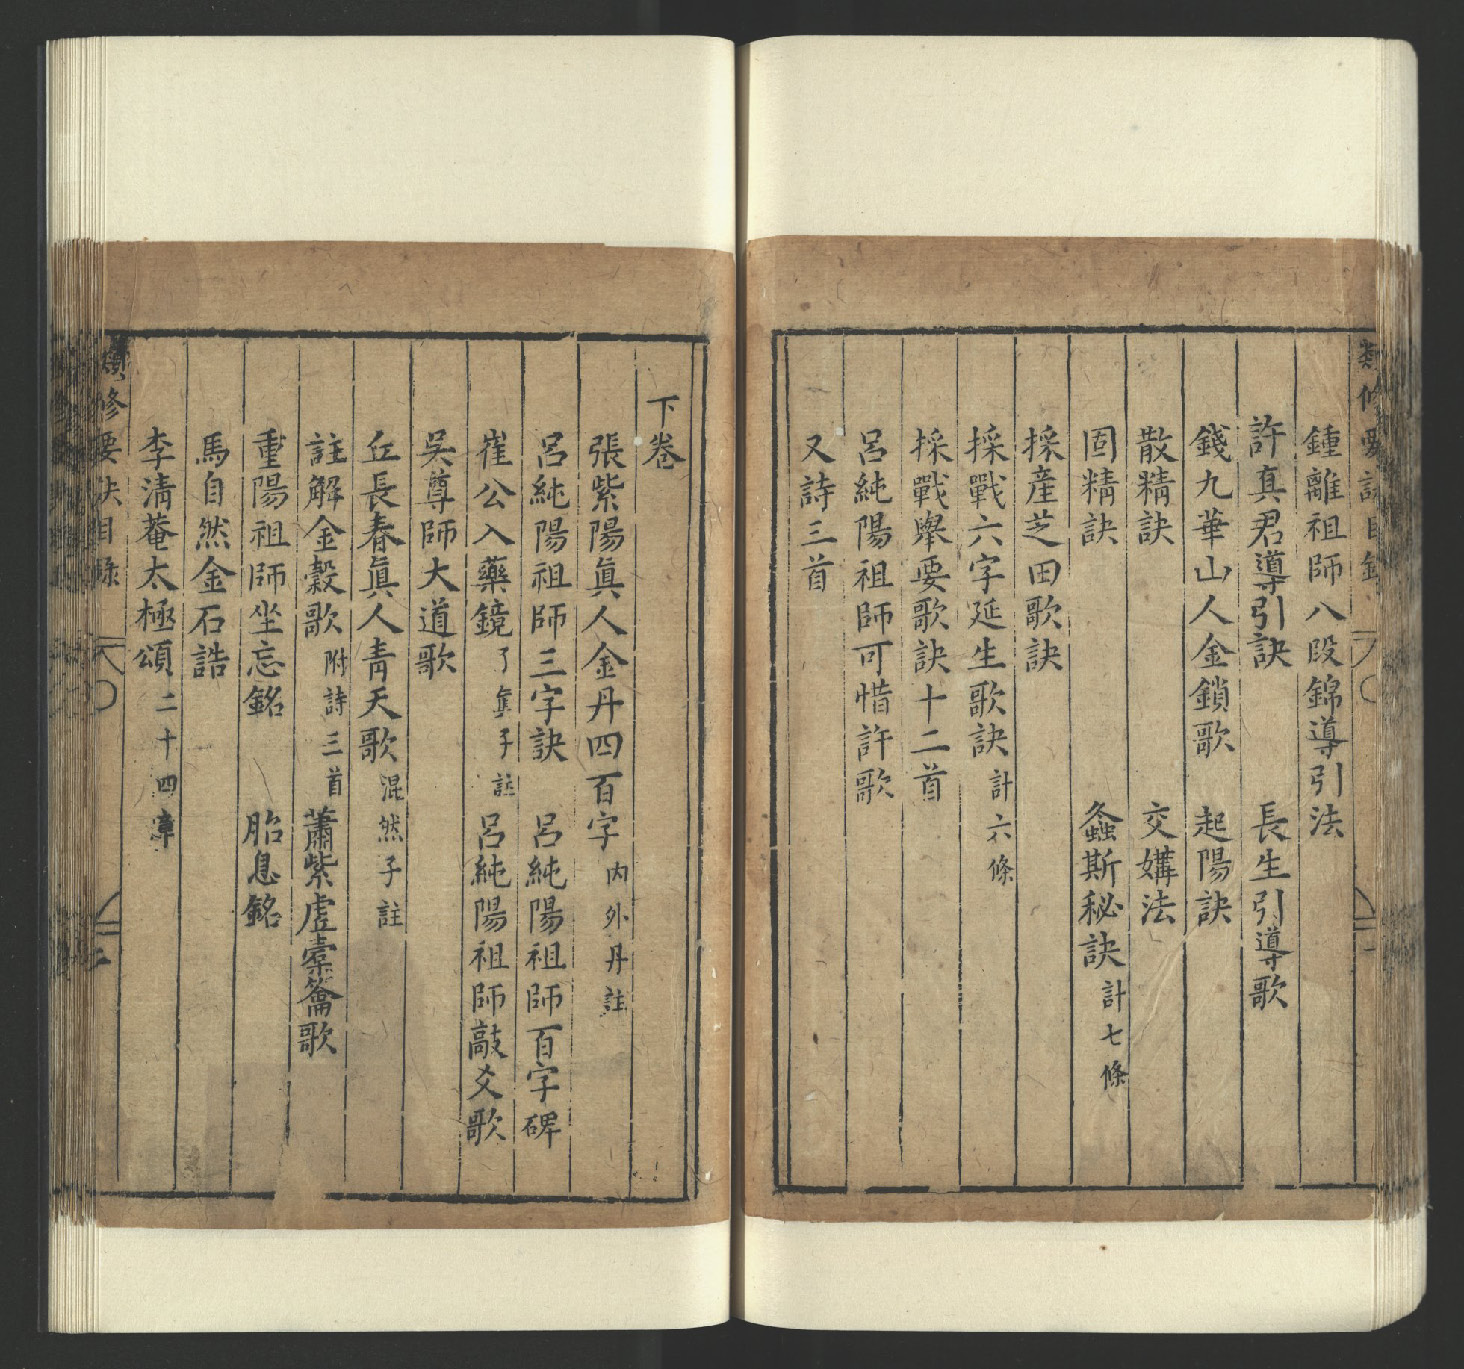 鍾離祖師八段錦導引法
許真君導引訣　長生引導歌
錢九華山人金鎖歌　起陽訣
散精訣　交媾法
固精訣　螽斯秘訣計七條
採產芝田歌訣
採戰六字延生歌訣計六條
採戰舉要歌訣十二首
呂純陽祖師可惜許歌
又詩三首
下卷
張紫陽眞人金丹四百字内外丹註
呂純陽祖師三字訣　呂純陽祖師百字碑
崔公入藥鏡了眞子註　呂純陽祖師敲爻歌
吳尊師大道歌
丘長春眞人青天歌混然子註
註解金穀歌附詩三首　蕭紫虛槖籥歌
重陽祖師坐忘銘　胎息銘
馬自然金石誥
李清菴太極頌二十四章
類修要訣目錄